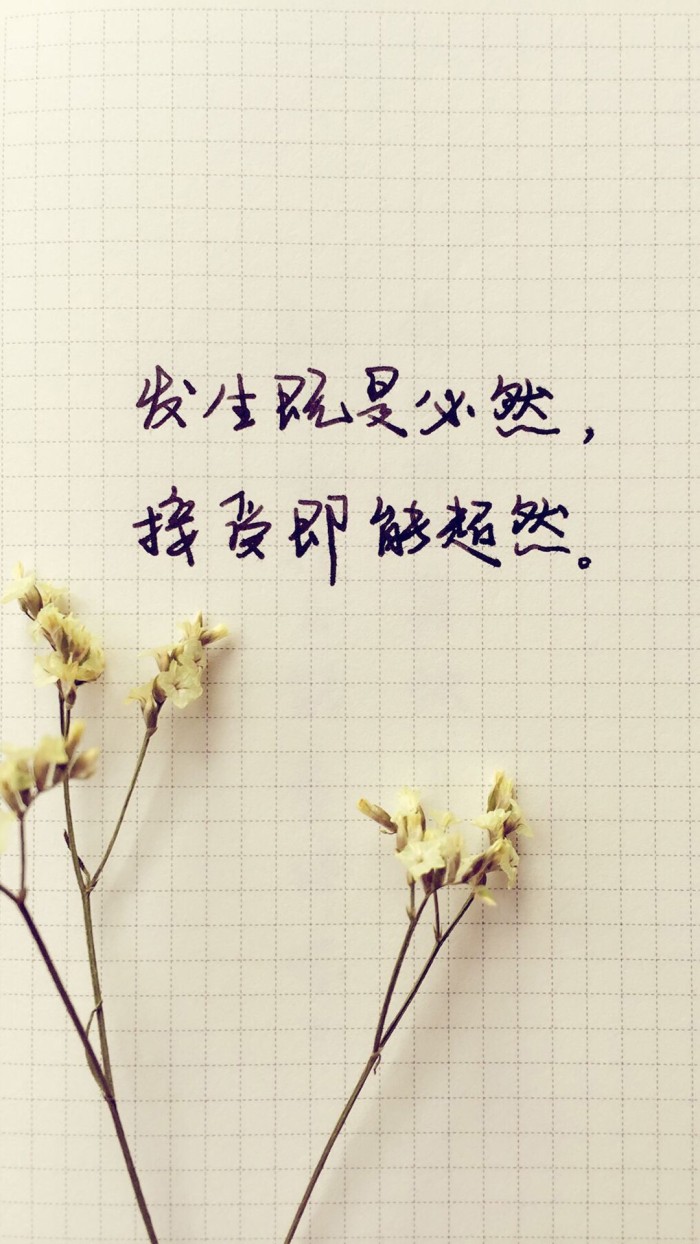 发生既是必然，
接受即能超然。